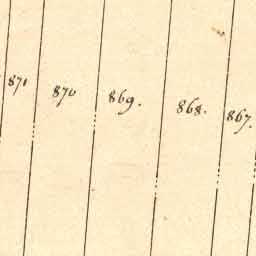 871 870 869. 868. 867.